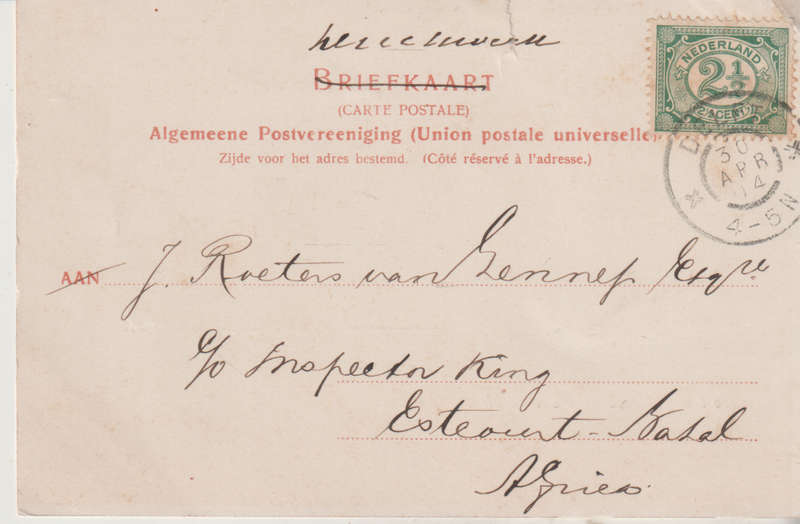 NEDERLAND
2½
2½ CENT
BRIEFKAART
(CARTE POSTALE)
Algemeene Postvereeniging (Union postale universelle)
Zijde voor het adres bestemd. (Côté réservé à l'adresse.)
30
APR
14
4-5N
AAN J. Roeters van Lennep Esqre
c/o Inspector King
Estcourt-Natal
Africa